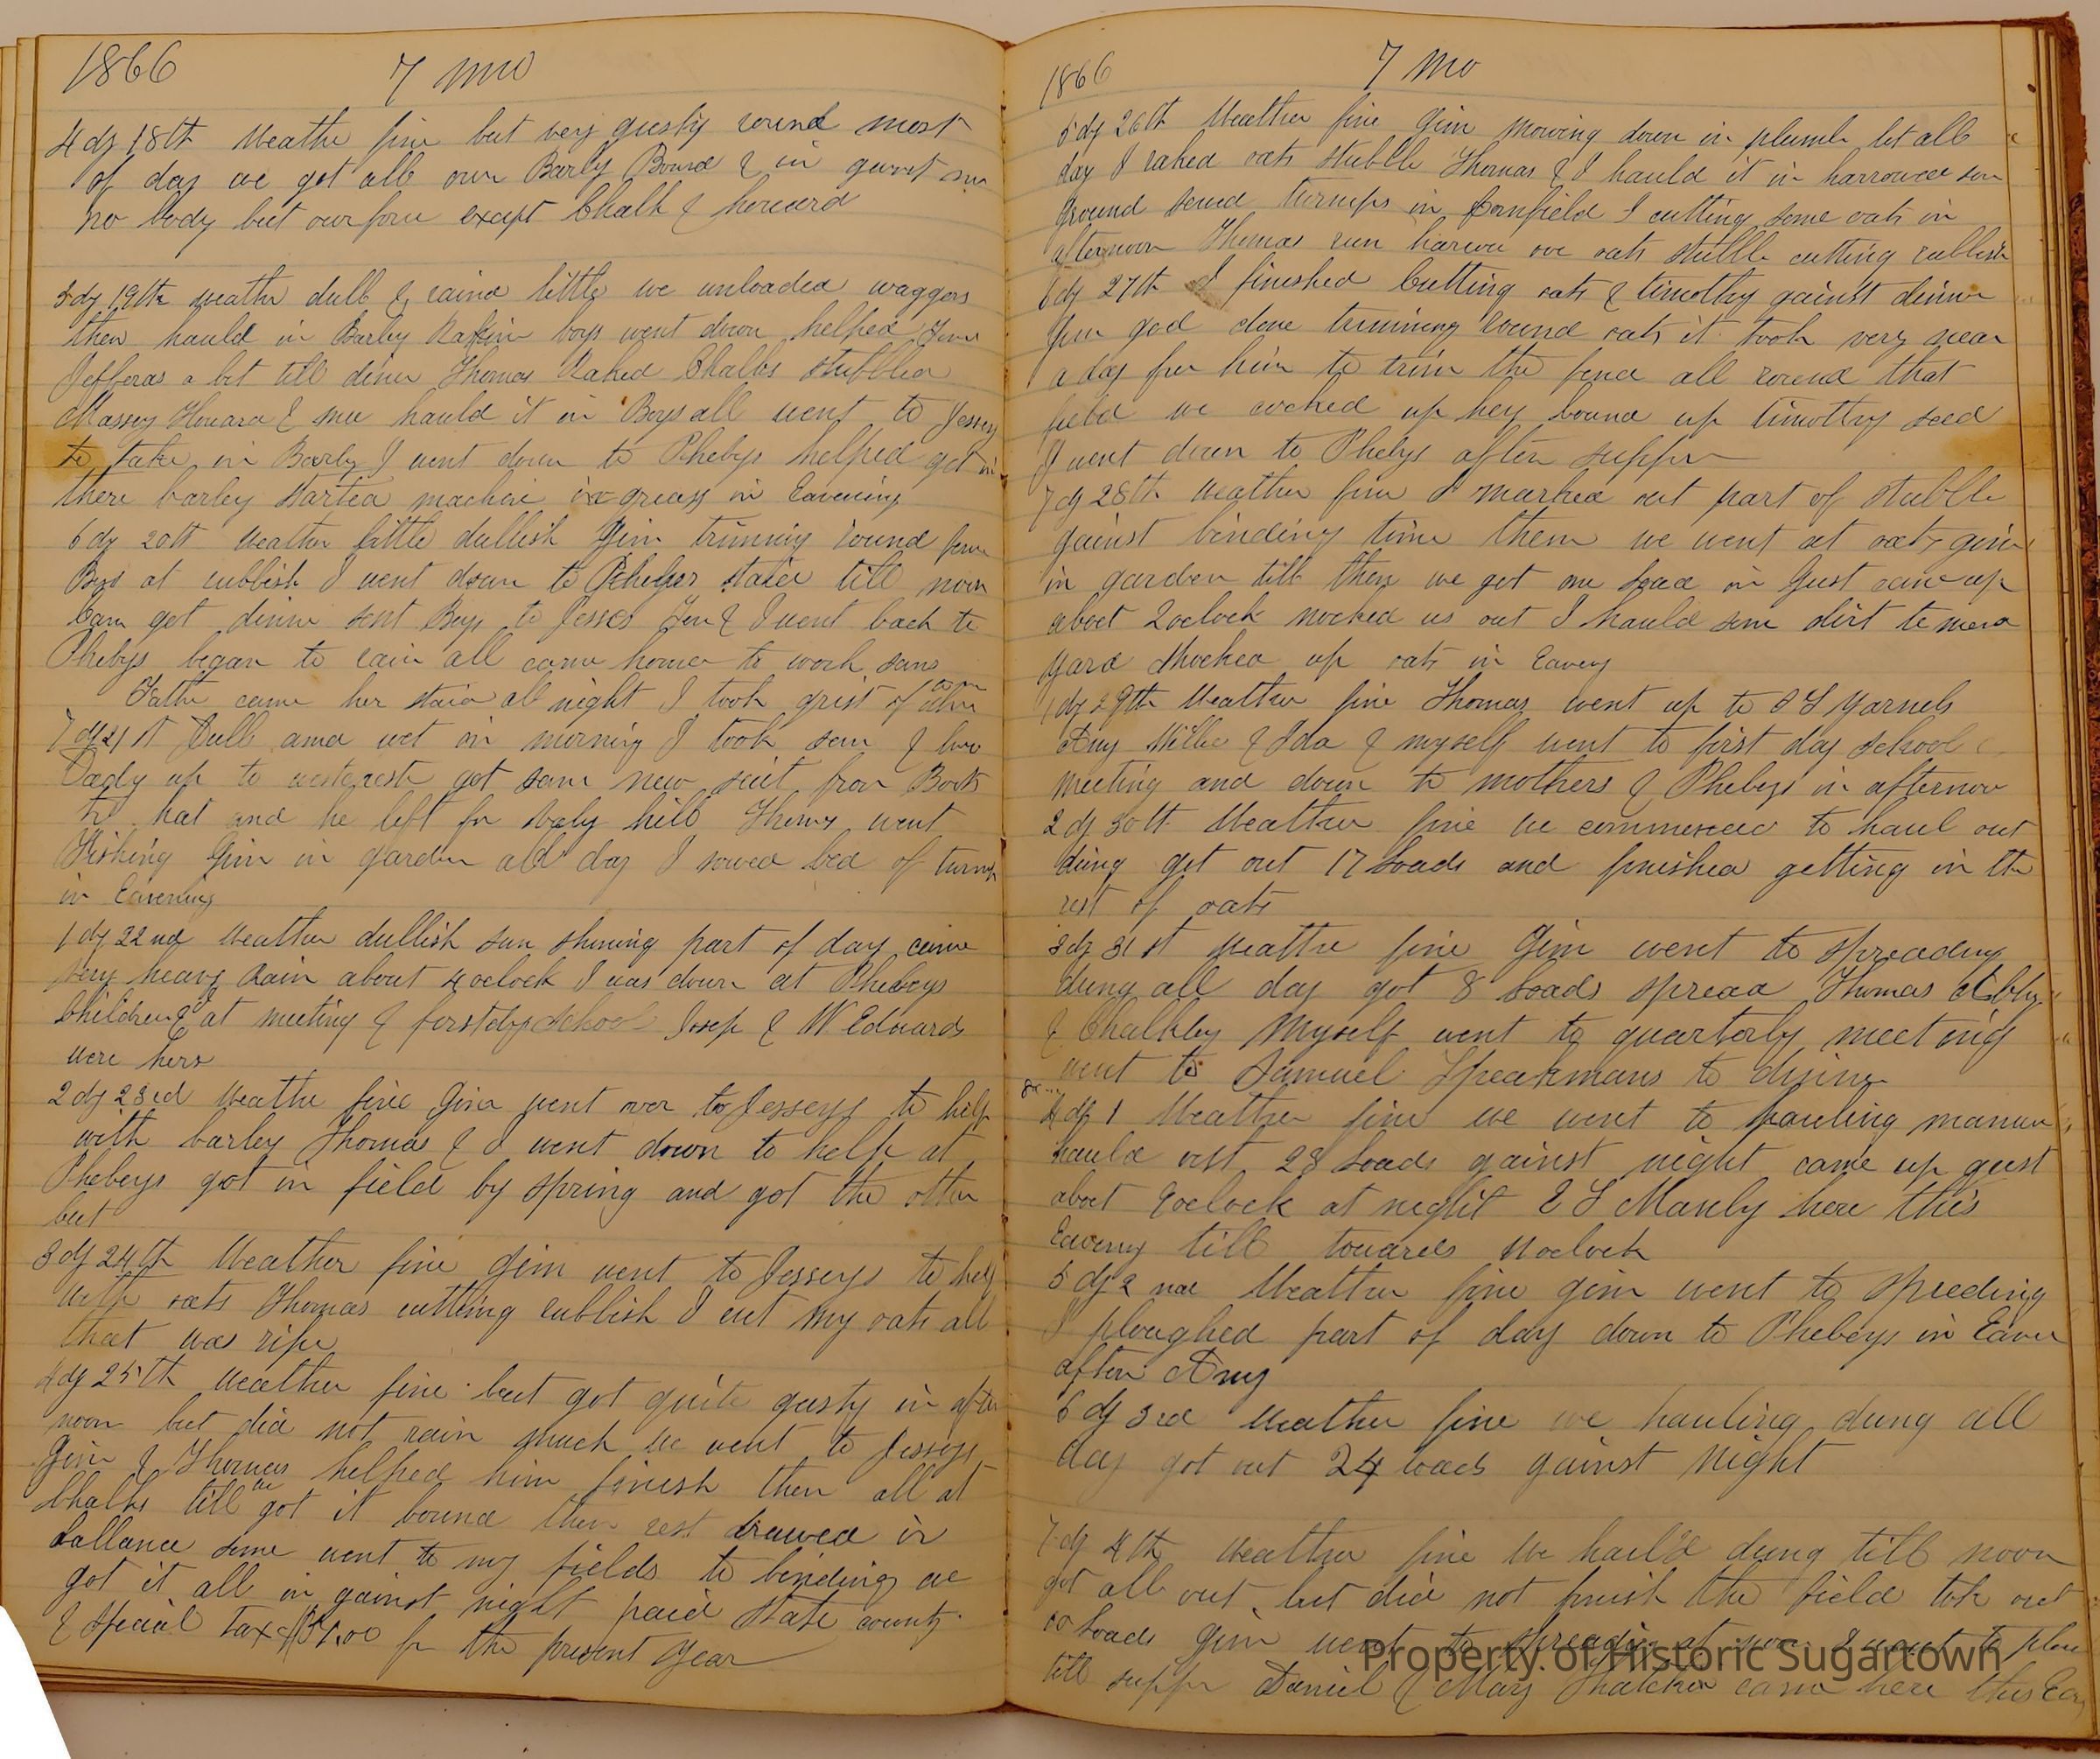 1866 7 mo
4 dy 18th Weathe fine but very gusty round most
of day we got all our Barly Bound & in
no body but our force except Chalk & howard
5 dy 19th weathe dull & raind little we unloaded waggons
then hauld in Barley boys went down helped
Jefferas a bit till diner Thomas Raked Chalks stubbles
Massey Howard & me hauld it in Boys all went to Jesseys
to take in Barly I went down to Phebys helped get in
there barley started machine in Eavening
6 dy 20th Weather little dullish Gim trimming round fence
Boys at rubbish I went down to Phebys staid till noon
Cam got dinne sent Boys to Jesses & I went back to
Phebys began to rain all came home to work
Fathe came her staid all night I took grist of corn
7 dy 21st Dull and wet in morning I took sam &
up to got sam new suit from Boots
to hat and he left for hill Thomas went
Fishing Gim in garden all day I sowed bed of turnip
in Eavening
1 dy 22nd Weather dullish sun shining part of day came
very heavy Rain about 4 oclock I was down at Phebeys
Children & I at meeting & firstdy school Josep & W Edwards
were here
2 dy 23rd Weathe fine Gim went over to Jesseys to help
with barley Thomas & I went down to help at
Phebeys got in field by spring and got the other
cut
3 dy 24th Weather fine Gim went to Jesseys to help
with oats Thomas cutting rubbish I cut my oats all
that was ripe
4 dy 25th Weather fine but got quite gusty in after
noon but did not rain much we went to Jesseys
Gim & Thomas helped him finish then all at
Chalks till we got it bound then rest drawed in
ballance some went to my fields to binding we
got it all in gainst night paid State county
& special tax for the present year
1866 7 Mo
5 dy 26th Weather fine Gim Mowing down in plumb lot all
day I raked oats stubble Thomas & I hauld it in harrowed som
ground sowed turnips in Cornfield I cutting some oats in
afternoon Thomas run harow ove oats stubble cutting rubbish
6 dy 27th I finished Cutting oats & timothy gainst dinner
Gim got done trimming round oats it took very near
a day for him to trim the fence all round that
field we cocked up hey bound up timothy seed
I went down to Phebys after supper
7 dy 28th Weather fine I marked out part of stubble
gainst binding time them we went at oats gim
in garden till then we got one load in Gust came up
about 2 oclock nocked us out I hauld som dirt to
yard shocked up oats in Eaveny
1 dy 29th Weather fine Thomas went up to Yarnels
Amy Millie & Ida & myself went to first day school
meeting and down to mothers & Phebeys in afternoon
2 dy 30th Weather fine we commenced to haul out
dung got out 17 Loads and finished getting in the
rest of oats
3 dy 31st Weathe fine Gim went to spreading
dung all day got 8 Loads spread Thomas
& Chalkley Myself went to quarterly meeting
went to Samuel Speakmans to dining
4 dy 1 Weather fine we went to hauling manure
hauld out 28 Loads gainst night came up gust
about oclock at night Manly here this
Eaveny till towards oclock
5 dy 2nd Weather fine gim went to spreeding
I ploughed part of day down to Phebeys in Eaven
after Amy
6 dy 3rd Weather fine we hauling dung all
day got out 24 loads gainst Night
7 dy 4th Weather fine We hauld dung till noon
got all out but did not finish the field tok out
Loads Gim went to spreading at noon I went to plow
till supper Daniel & Mary Thatcher came here this Eav
Property of Historic Sugartown